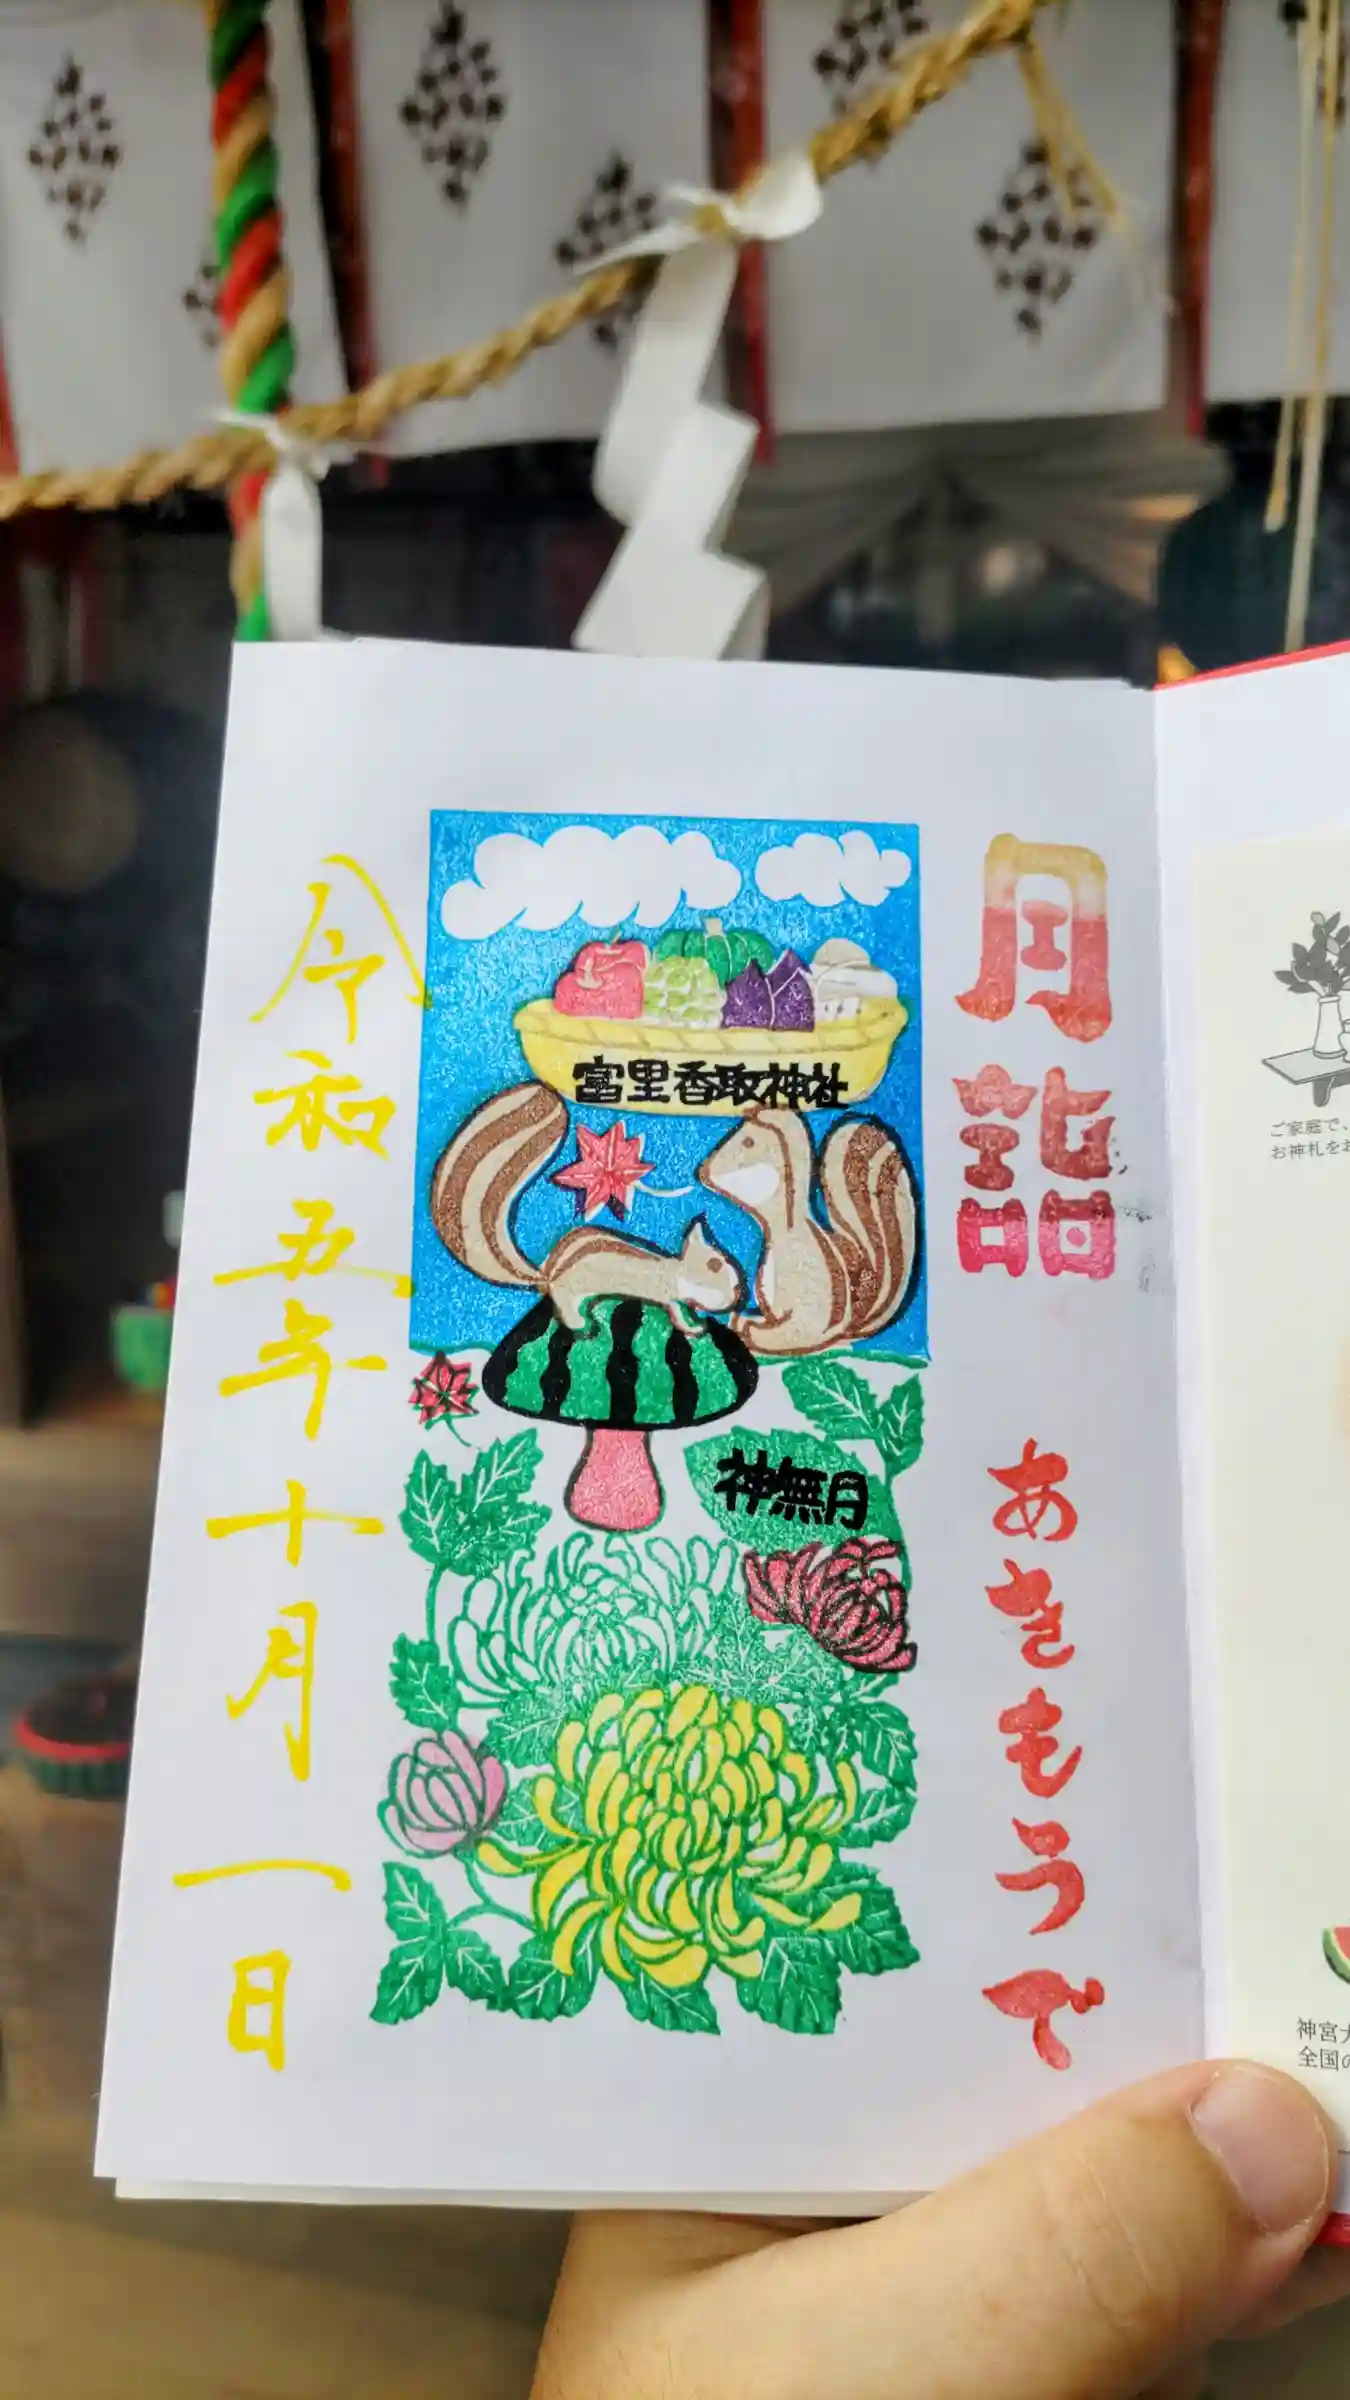 月詣
あきもうで
富里香取神社
神無月
令和五年十月一日
ご家庭で、
お神札をお
神宮大
全国の